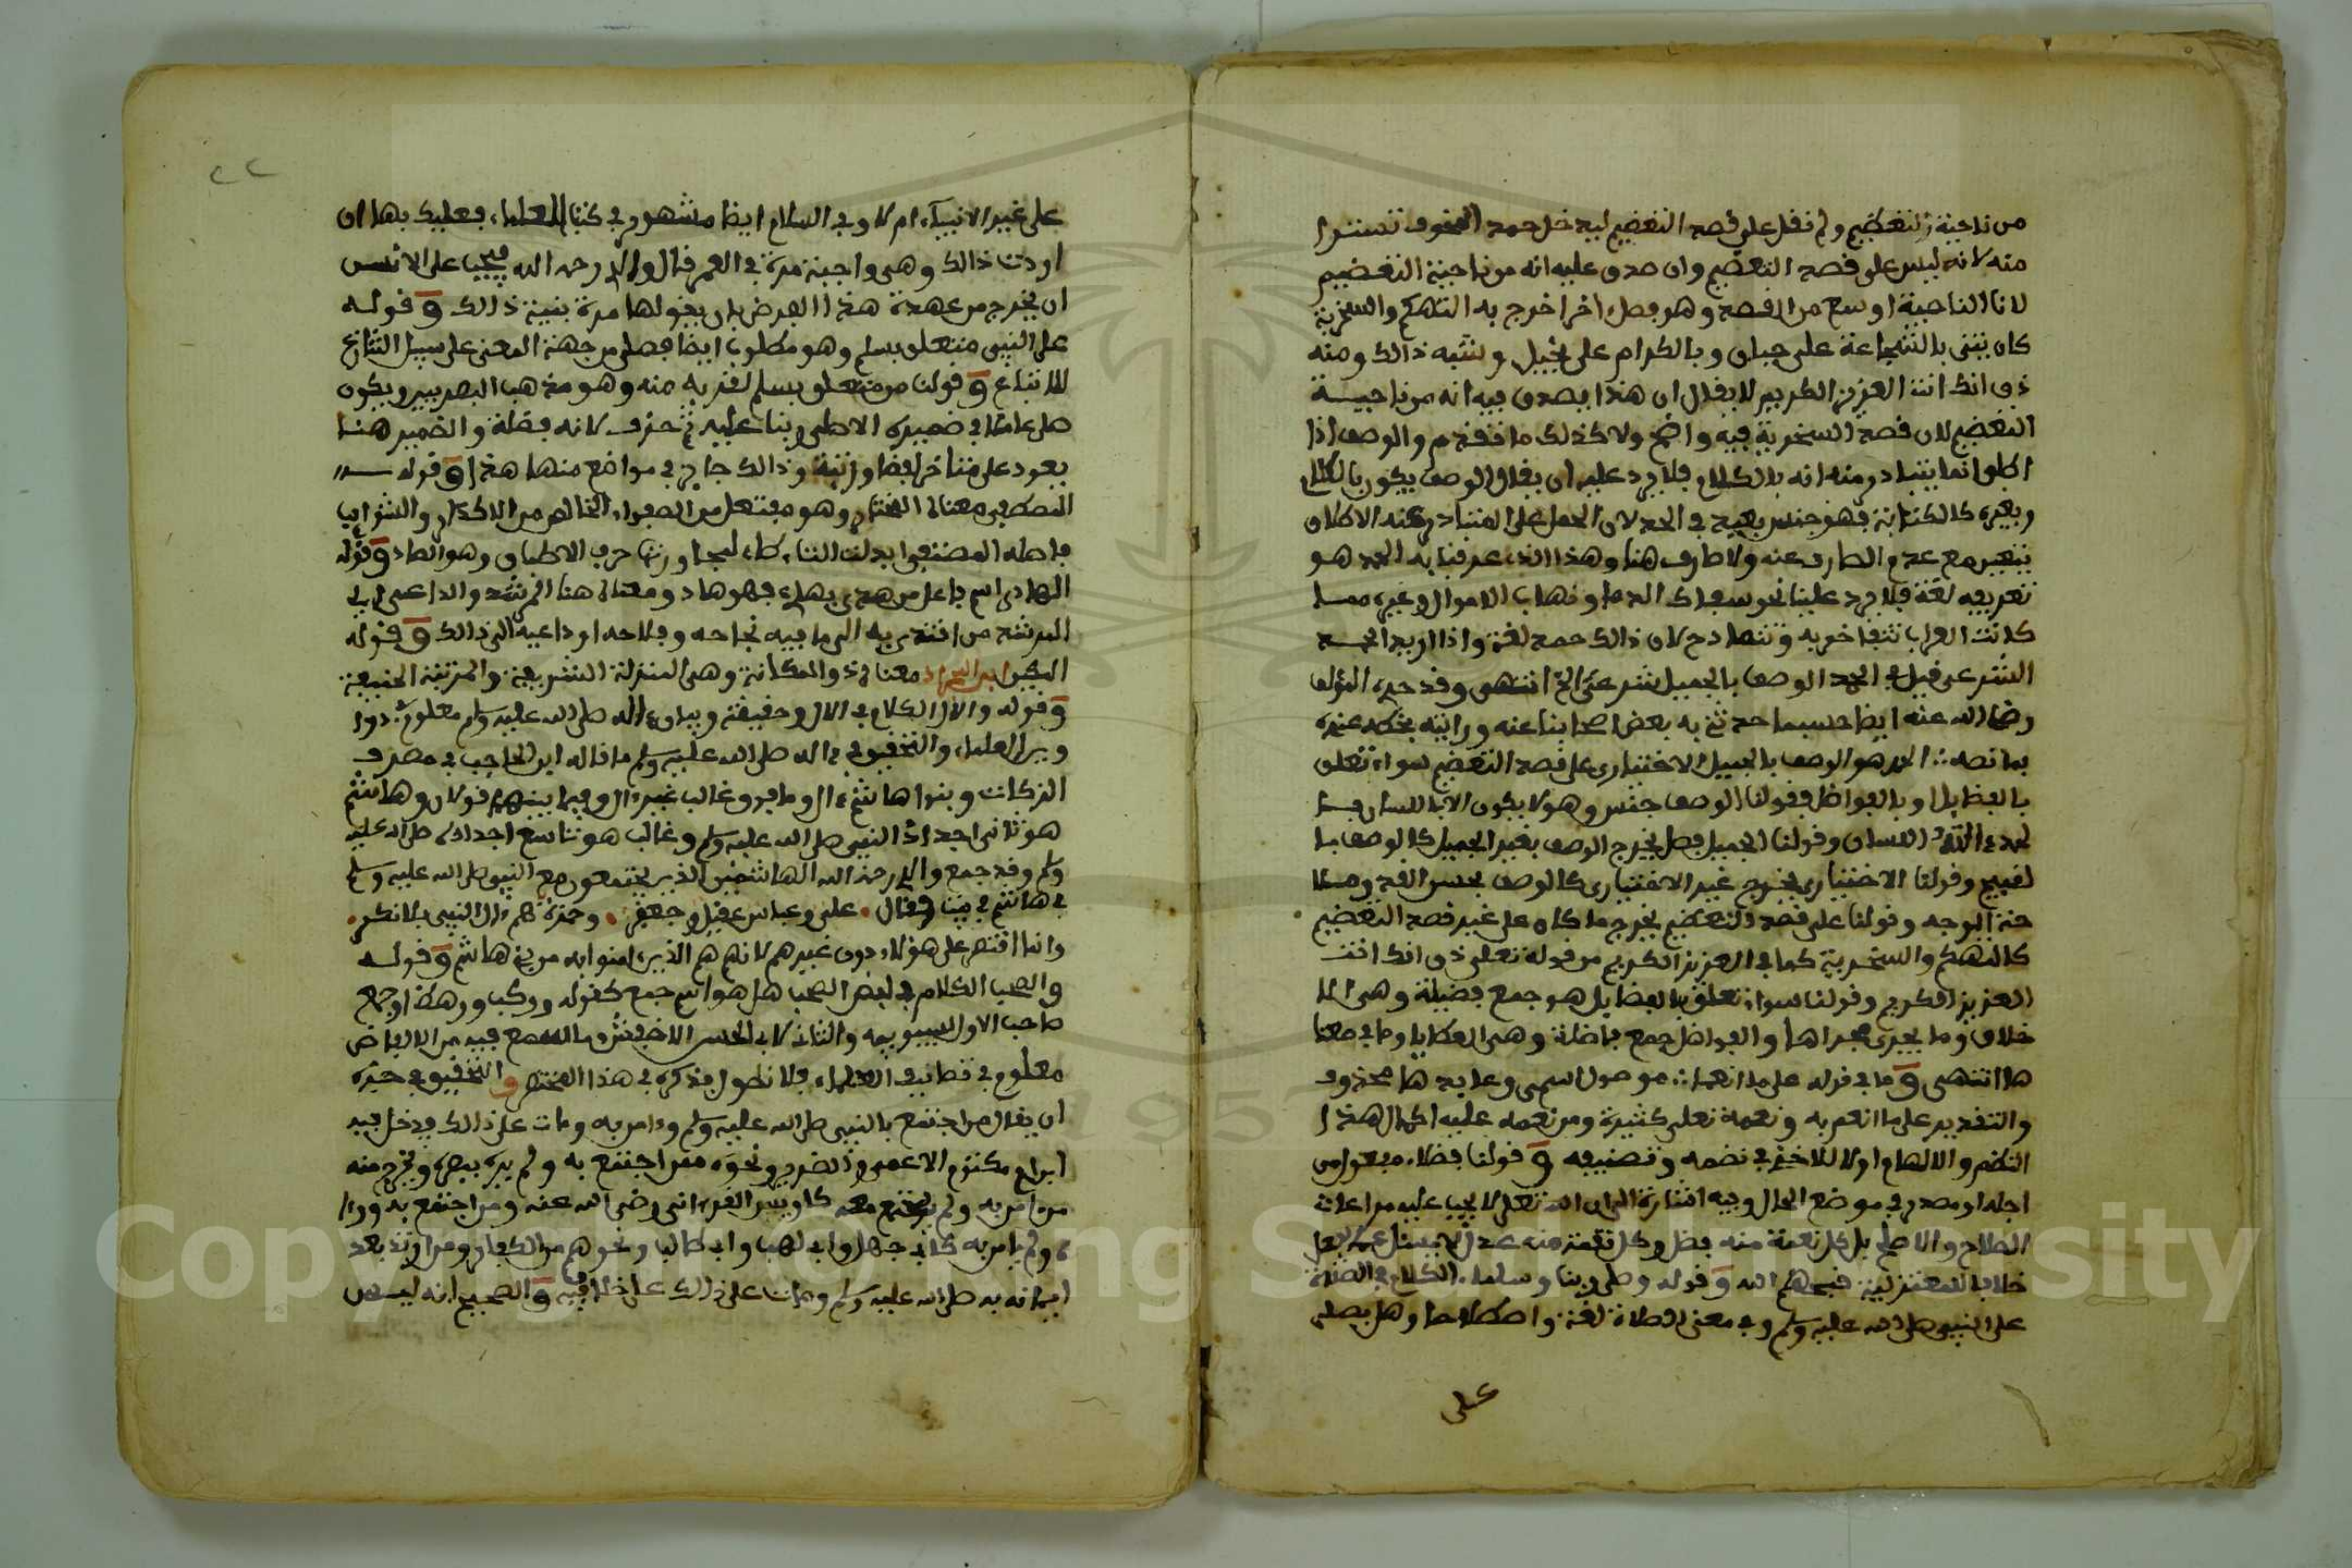 من ناحية التعظيم ولم نقل على قصد التعظيم ليدخل حمد المخوف تسترا
منه لانه ليس على قصد التعظيم وان صدق عليه انه من ناحية التعظيم
لان الناحية اوسع من القصد وهو فصل اخر اخرج به التهكم والسخرية
كان يثنى بالشجاعة على جبان وبالكرام على بخيل وشبه ذالك ومنه
ذق انك انت العزيز الكريم لا يقال ان هذا يصدق فيه انه من ناحية
التعظيم لان قصد السخرية فيه واضح ولا كذلك ما تقدم والوصف اذا
اطلق انما يتبادر منه انه بالكلام فلا يرد عليه ان يقال الوصف يكون بالكلام
وبغيره كالكتابة فهو جنس بعيد في الحد لان الحمل على المتبادر عند الاطلاق
يتعين مع عدم الصارف عنه ولا صارف هنا وهذا الذي عرفنا به الحمد هو
تعريفه لغة فلا يرد علينا نحو سفك الدما ونهاب الاموال وغيره مما
كانت العراب تتفاخر به وتتمادح لان ذالك حمد لغة واذا اريد الحمد
الشرعي قيل في الحد الوصف بالجميل شرعي الخ انتهى وقد حده المؤلف
رضي الله عنه ايضا حسبما حدثني به بعض اصحابنا عنه ورايته بخطه عنده
بما نصه الحمد هو الوصف بالجميل الاختياري على قصد التعظيم سواء تعلق
بالفضايل او بالفواضل فقولنا الوصف جنس وهو لا يكون الا باللسان
اللسان وقولنا الجميل فصل يخرج الوصف بغير الجميل كالوصف بما
لقبيح وقولنا الاختياري يخرج غير الاختياري كالوصف بحسن القد وصبا
حة الوجه وقولنا على قصد التعظيم يخرج ما كان على غير قصد التعظيم
كالتهكم والسخرية كما في العزيز الكريم من قوله تعلى ذق انك انت
العزيز الكريم وقولنا سواء تعلق بالفضايل هو جمع فضيلة وهي الا
خلاق وما يجرى مجراها والفواضل جمع فاضلة وهى العطايا وما في معنا
ها انتهى وما في قوله على ما انعما موصول اسمي وعايدها محذوف
والتقدير على ما انعم به ونعمه تعلى كثيرة ومن نعمه عليه اكمال هذا
النظم والالهام اولا للاخذ في نضمه وتصنيفه وقولنا فضلا مفعول من
اجله او مصدر في موضع الحال وفيه اشارة الى ان الله تعلى لا يجب عليه مراعات
الصلاح والاصلح بل كل نعمة منه فضل وكل نقمة منه عدل لا يسئل عما يفعل
خلافا للمعتزلة قبحهم الله وقوله وصلى ربنا وسلما الكلام في الصلاة
على النبي صلى الله عليه وسلم وفي معنى الصلاة لغة واصطلاحا وهل يصلى
على
٢٢
على غير الانبياء ام لا وفي السلام ايضا مشهور في كتب العلماء فعليك بها ان
اردت ذالك وهى واجبة مرة في العمر قال والدي رحمه الله يجب على الانسان
ان يخرج من عهدة هذا الفرض بان يقولها مرة بنية ذالك وقوله
على النبي متعلق بسلم وهو مطلوب ايضا فصلى من جهة المعنى على سبيل التنازع
للاتباع وقولنا متعلق بسلم لقربه منه وهو مذهب البصريين ويكون
صلى عاملا في ضميره الاصلى ربنا عليه ثم حذف لانه فضلة والضمير هنا
يعود على متاخر لفظا ورتبة وذالك جايز في مواضع منها هذا وقوله
المصطفى معناه المختار وهو مفتعل من الصفو الخالص من الاكدار والشوايب
فاصله المصتفى ابدلت التاء طاء لمجاورتها حرف الاطباق وهو الصاد وقوله
الهادى اسم فاعل من هدى يهدى فهو هاد ومعناه هنا المرشد والداعى اي
المرشد من اقتدى به الى ما فيه نجاحه وفلاحه او داعيه الى ذالك وقوله
المكين معناه ذو المكانة وهى المنزلة الشريفة والمرتبة المنيفة
وقوله والال الكلام في الال وحقيقته وبيان ءاله صلى الله عليه وسلم معلوم
وبين العلماء والتحقيق في ءاله صلى الله عليه وسلم ما قاله ابن الحاجب في مصرف
الزكات وبنوا هاشم ءال وما فوق غالب غير ءال وفيما بينهم قولان وهاشم
هو ثانى اجداد النبي صلى الله عليه وسلم وغالب هو تاسع اجداده صلى الله عليه
وسلم وقد جمع والدي رحمه الله الهاشميين الذين يجتمعون مع النبي صلى الله عليه وسلم
في هاشم في بيت فقال على وعباس عقيل وجعفر وحمزة هم ءال النبي بلا نكر
وانما اقتصر على هؤلاء دون غيرهم لانهم هم الذين ءامنوا به من بنى هاشم وقوله
والصحب الكلام في لفظ الصحب هل هو اسم جمع كقوله وركب ورهط او جمع
صاحب الاول لسيبويه والثاني لابي الحسن الاخفش وما للسمع فيه من الالفاظ
معلوم في تصانيف العلماء فلا نطول بذكره في هذا المختصر والتحقيق في حده
ان يقال من اجتمع بالنبي صلى الله عليه وسلم وءامن به ومات على ذالك فيدخل فيه
ابن ام مكتوم الاعمى والضرير ونحوه ممن اجتمع به ولم يره ببصره ويخرج منه
من ءامن به ولم يجتمع معه كاويس القرني رضي الله عنه ومن اجتمع به وراء
ه ولم يامن به كابي جهل وابي لهب وابي طالب ونحوهم من الكفار ومن ارتد بعد
ايمانه به صلى الله عليه وسلم ومات على ذالك على خلاف فيه والصحيح انه ليس
Copyright © King Saud University
1957